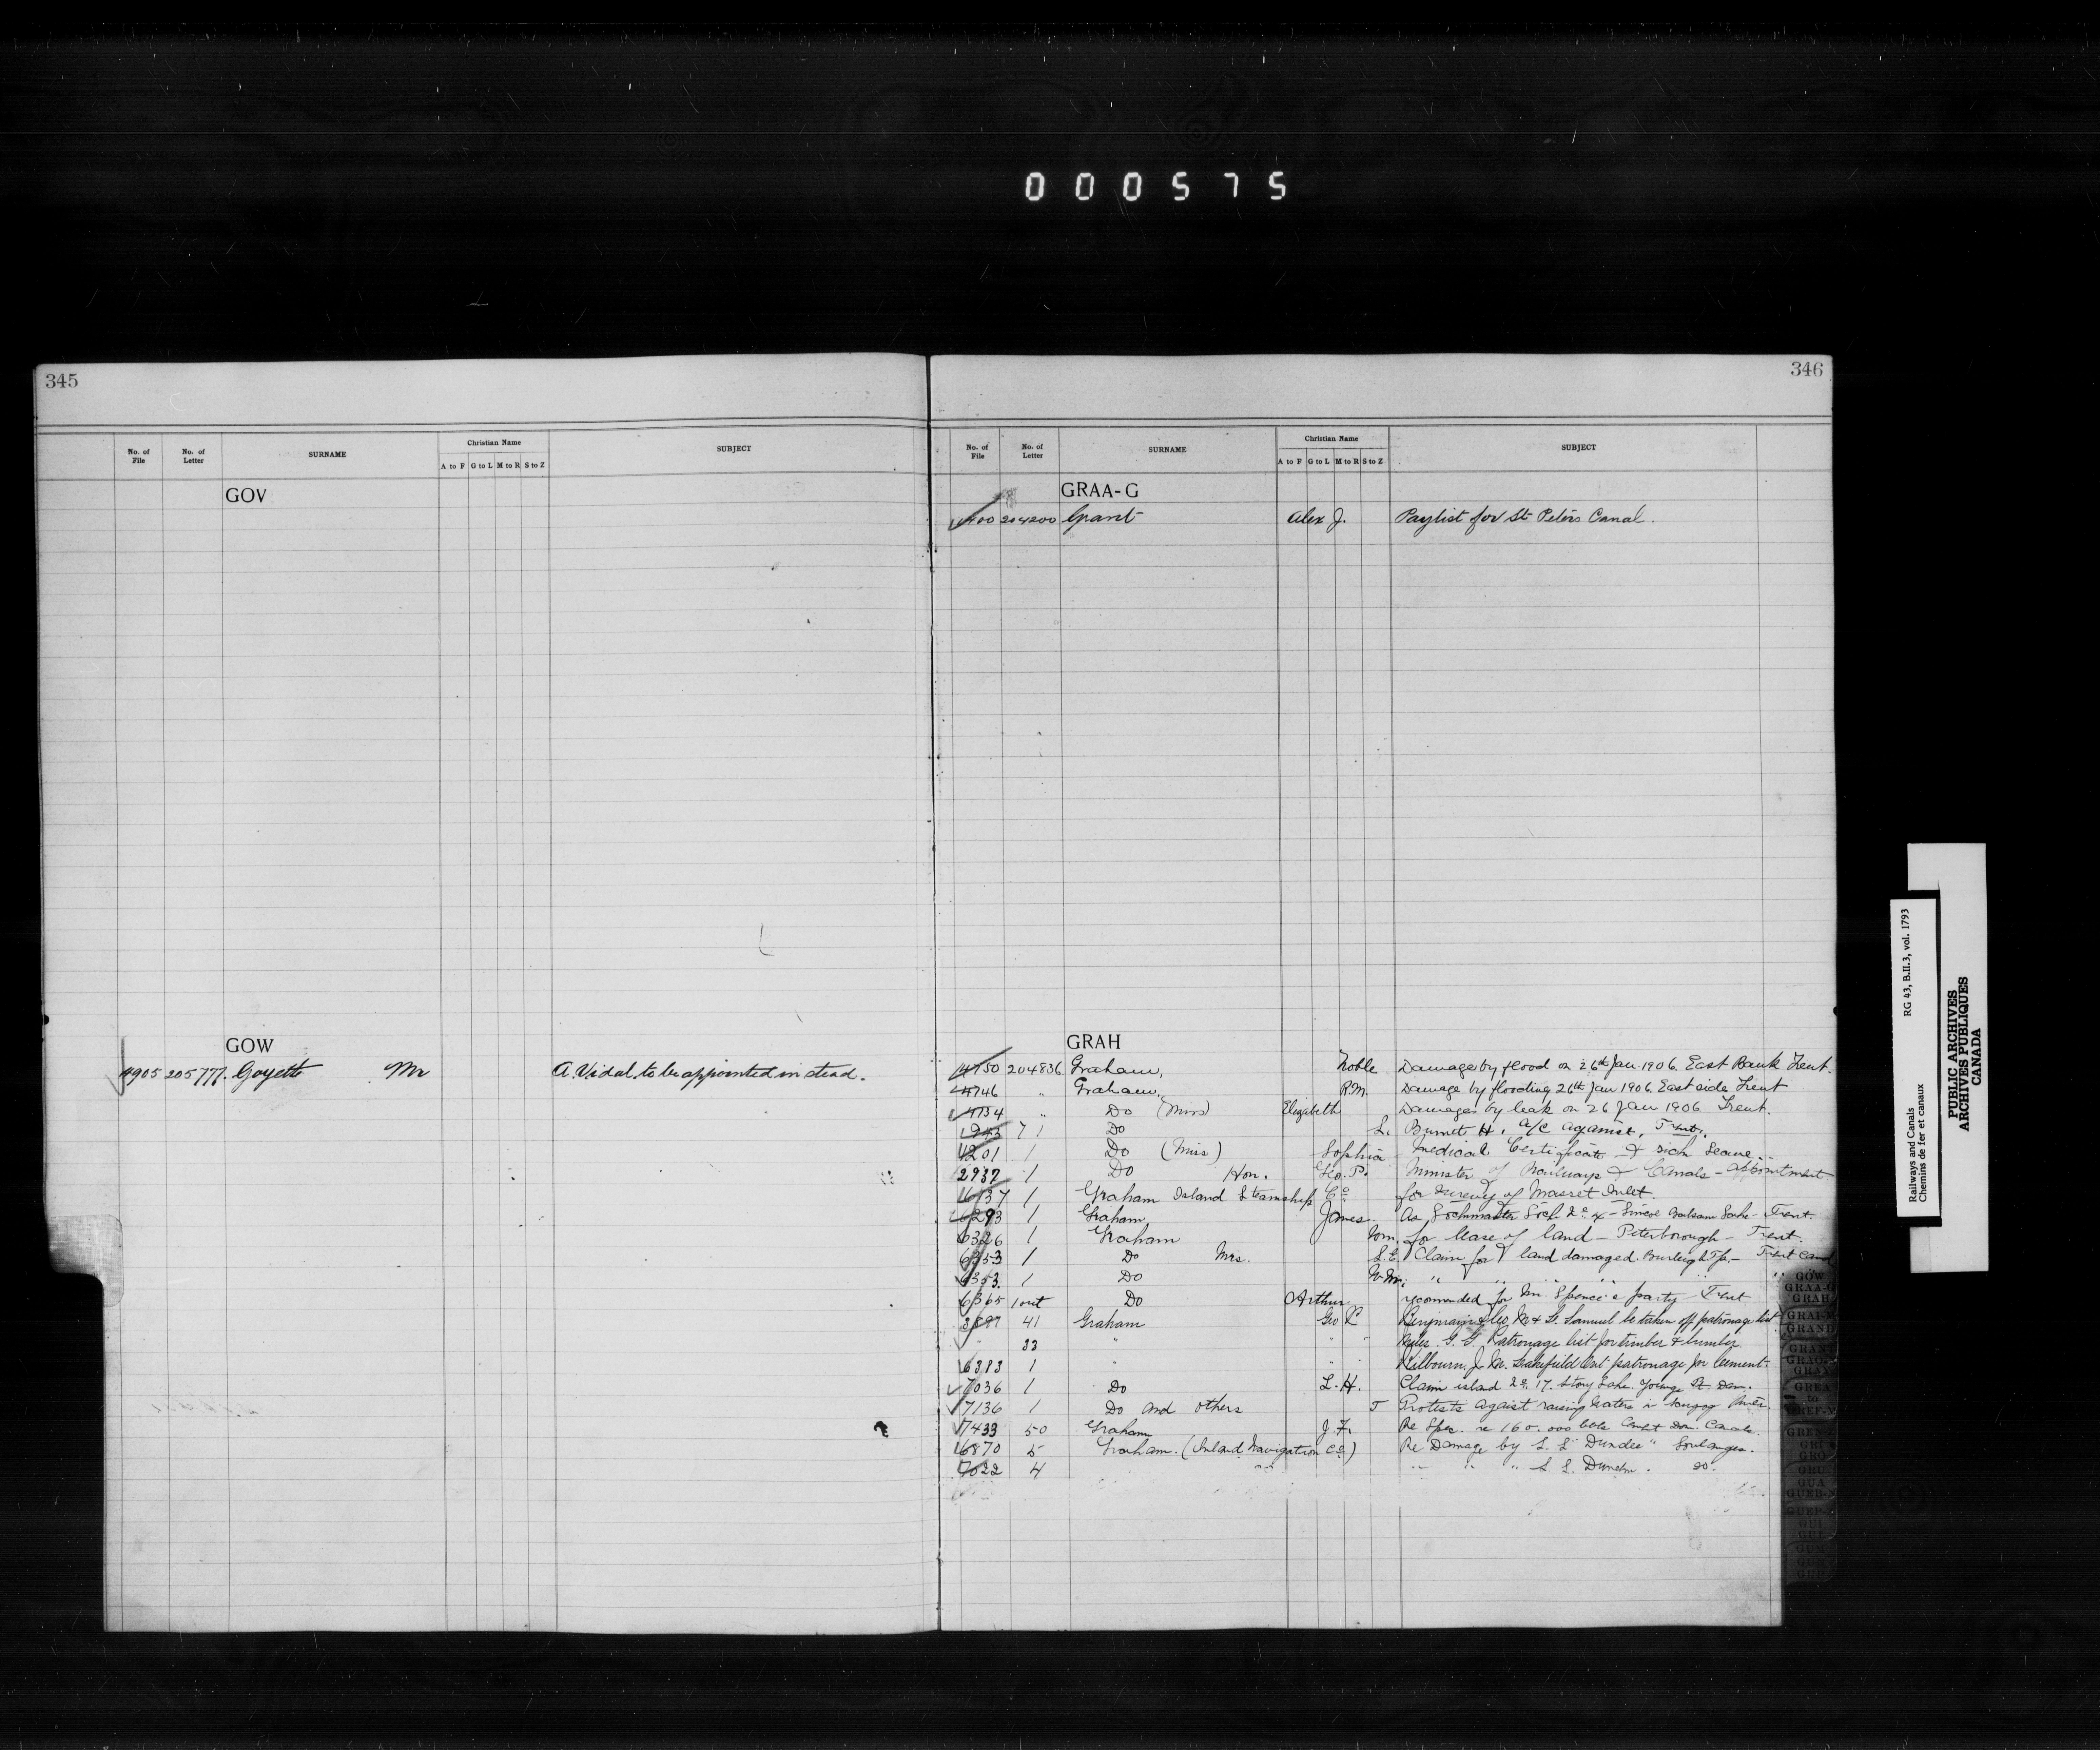 000575
345
No. of File No. of Letter SURNAME Christian Name A to F G to L M to R S to Z SUBJECT
GOV
GOW
4905 205777 Goyette Mr A. Vidal to be appointed instead.
346
No. of File No. of Letter SURNAME Christian Name A to F G to L M to R S to Z SUBJECT
GRAA-G
204200 Grant Alex J. Paylist for St Peters Canal.
GRAH
4750 204836 Graham, Noble Damage by flood on 26th Jan. 1906. East Bank Trent.
4746 " Graham, R.M. Damage by flooding 26th Jan 1906. East side Trent
4734 " Do (Miss) Elizabeth Damages by leak on 26 Jan 1906 Trent.
1943 71 Do L. Burnet H. a/c against, Trent.
4201 1 Do (Miss) Sophia Medical Certificate & sick leave.
2937 1 Do Hon. Geo. P. Minister of Railways & Canals - appointment
6137 1 Graham Island Steamship Co for survey of Masset Inlet.
6293 1 Graham James. As Lockmaster Lock No 4 - Simcoe Balsam Lake - Trent.
6326 1 Graham Wm. for lease of land - Peterborough - Trent.
6353 1 Do Mrs. S.E. Claim for land damaged Burleigh Tp. - Trent Canal
6353. 1 Do W.M. " " " " " "
6365 1 out Do Arthur recomended for Mr. Spence's party - Trent
3897 41 Graham Geo P. Benjmain & Co, M. & L. Samuel be taken off patronage list
" 33 " " " G. G. Patronage list for timber & lumber
6383 1 " " " Kilbourn, J. M. Lakefield Ont patronage for cement.
7036 1 Do L. H. Claim island No. 17. Stony Lake. Youngs Pt. Dam.
7136 1 Do and others J Protests against raising waters in Scugog River
7433 50 Graham J. F. Re Spec. re 160.000 bbls Cement Dom. Canals.
6870 5 Graham. (Inland Navigation Co) Re Damage by S. S. "Dundee" Soulanges.
7022 4 " " " " " S. S. Dunelm. do.
GOW
GRAA-G
GRAH
GRAI-
GRAND
GRAY
GREA
to
GREN-
GRI
GRO
GRU
GUA
GUEB-
GUEP-
GUI
GUL
GUM
GUN
GUP
Railways and Canals RG 43, B.II.3, vol. 1793
Chemins de fer et canaux
PUBLIC ARCHIVES
ARCHIVES PUBLIQUES
CANADA